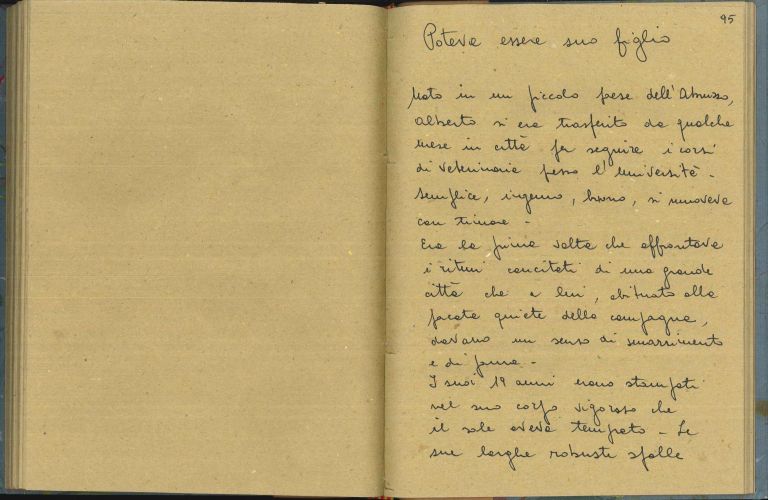 95
Poteva essere suo figlio
Nato in un piccolo paese dell'Abruzzo,
Alberto si era trasferito da qualche
mese in città per seguire i corsi
di veterinaria presso l'università -
Semplice, ingenuo, buono, si muoveva
con timore -
Era la prima volta che affrontava
i ritmi concitati di una grande
città che a lui, abituato alla
pacata quiete della campagna,
davano un senso di smarrimento
e di paura -
I suoi 19 anni erano stampati
nel suo corpo vigoroso che
il sole aveva temprato - Le
sue larghe robuste spalle